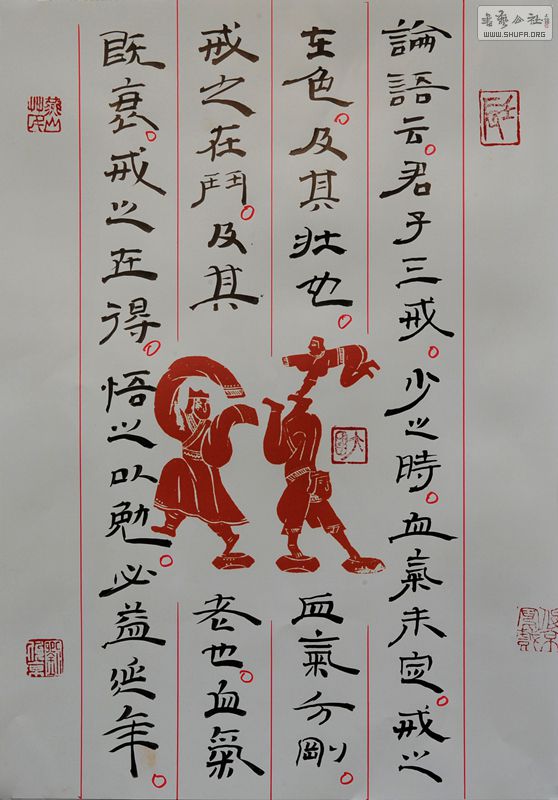 論語云君子三戒少之時血氣未定戒之
在色及其壯也血氣方剛
戒之在鬥及其老也血氣
既衰戒之在得悟之以勉必益延年
書藝公社
WWW.SHUFA.ORG